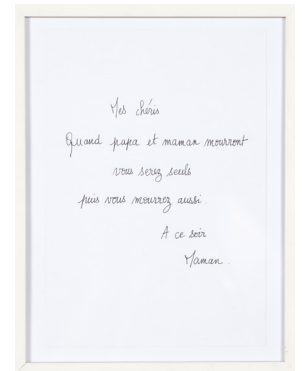 Mes chéris
Quand papa et maman mourront
vous serez seuls
puis vous mourrez aussi.
A ce soir
Maman.